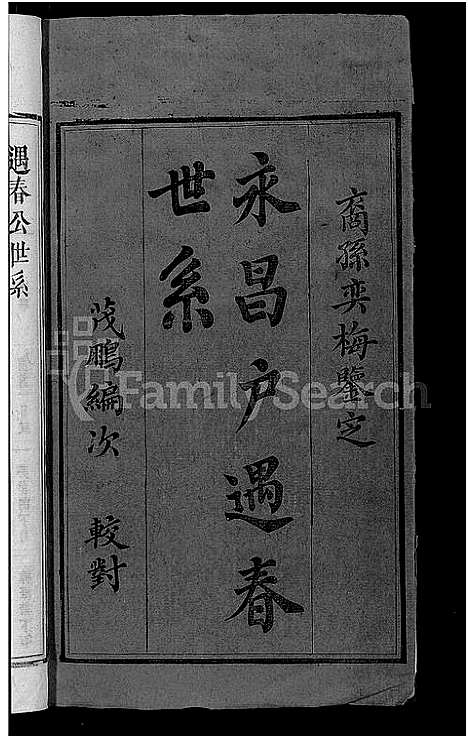 裔孫奕梅鑒定
永昌户遇春
世系
茂鵬編次 較對
遇春公世系
FamilySearch